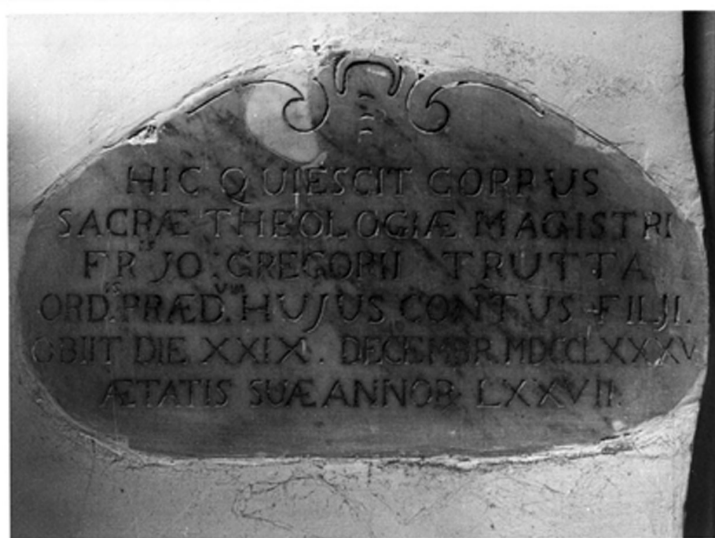 HIC QUIESCIT CORPUS
SACRÆ THEOLOGIÆ MAGISTRI
FRIS JO: GREGORII TRUTTA
ORD.IS PRÆD.UM HUJUS CONTUS FILJI.
OBIIT DIE XXIX. DECEMBR. MDCCLXXXV
ÆTATIS SUÆ ANNOR. LXXVII.